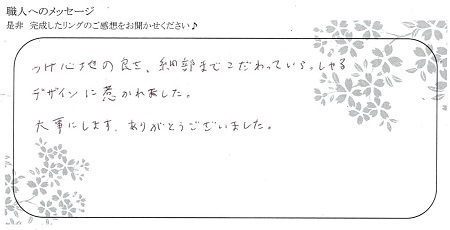 職人へのメッセージ
是非 完成したリングのご感想をお聞かせください♪
つけ心地の良さ、細部までこだわっていらっしゃる
デザインに惹かれました。
大事にします。ありがとうございました。